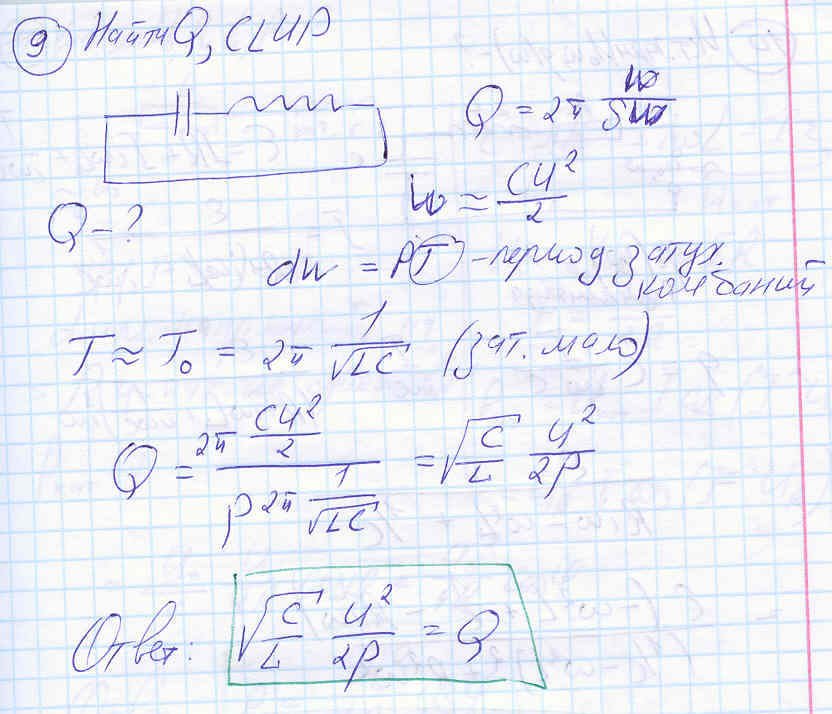 9 Найти Q, CLUP
Q = 2π W/δW
W ≈ CU²/2
Q - ?
dW = PT - период затух. колебаний
T ≈ T₀ = 2π 1/√LC (зат. мало)
Q = (2π CU²/2)/(P 2π 1/√LC) = √(C/L) U²/2P
Ответ: √(C/L) U²/2P = Q